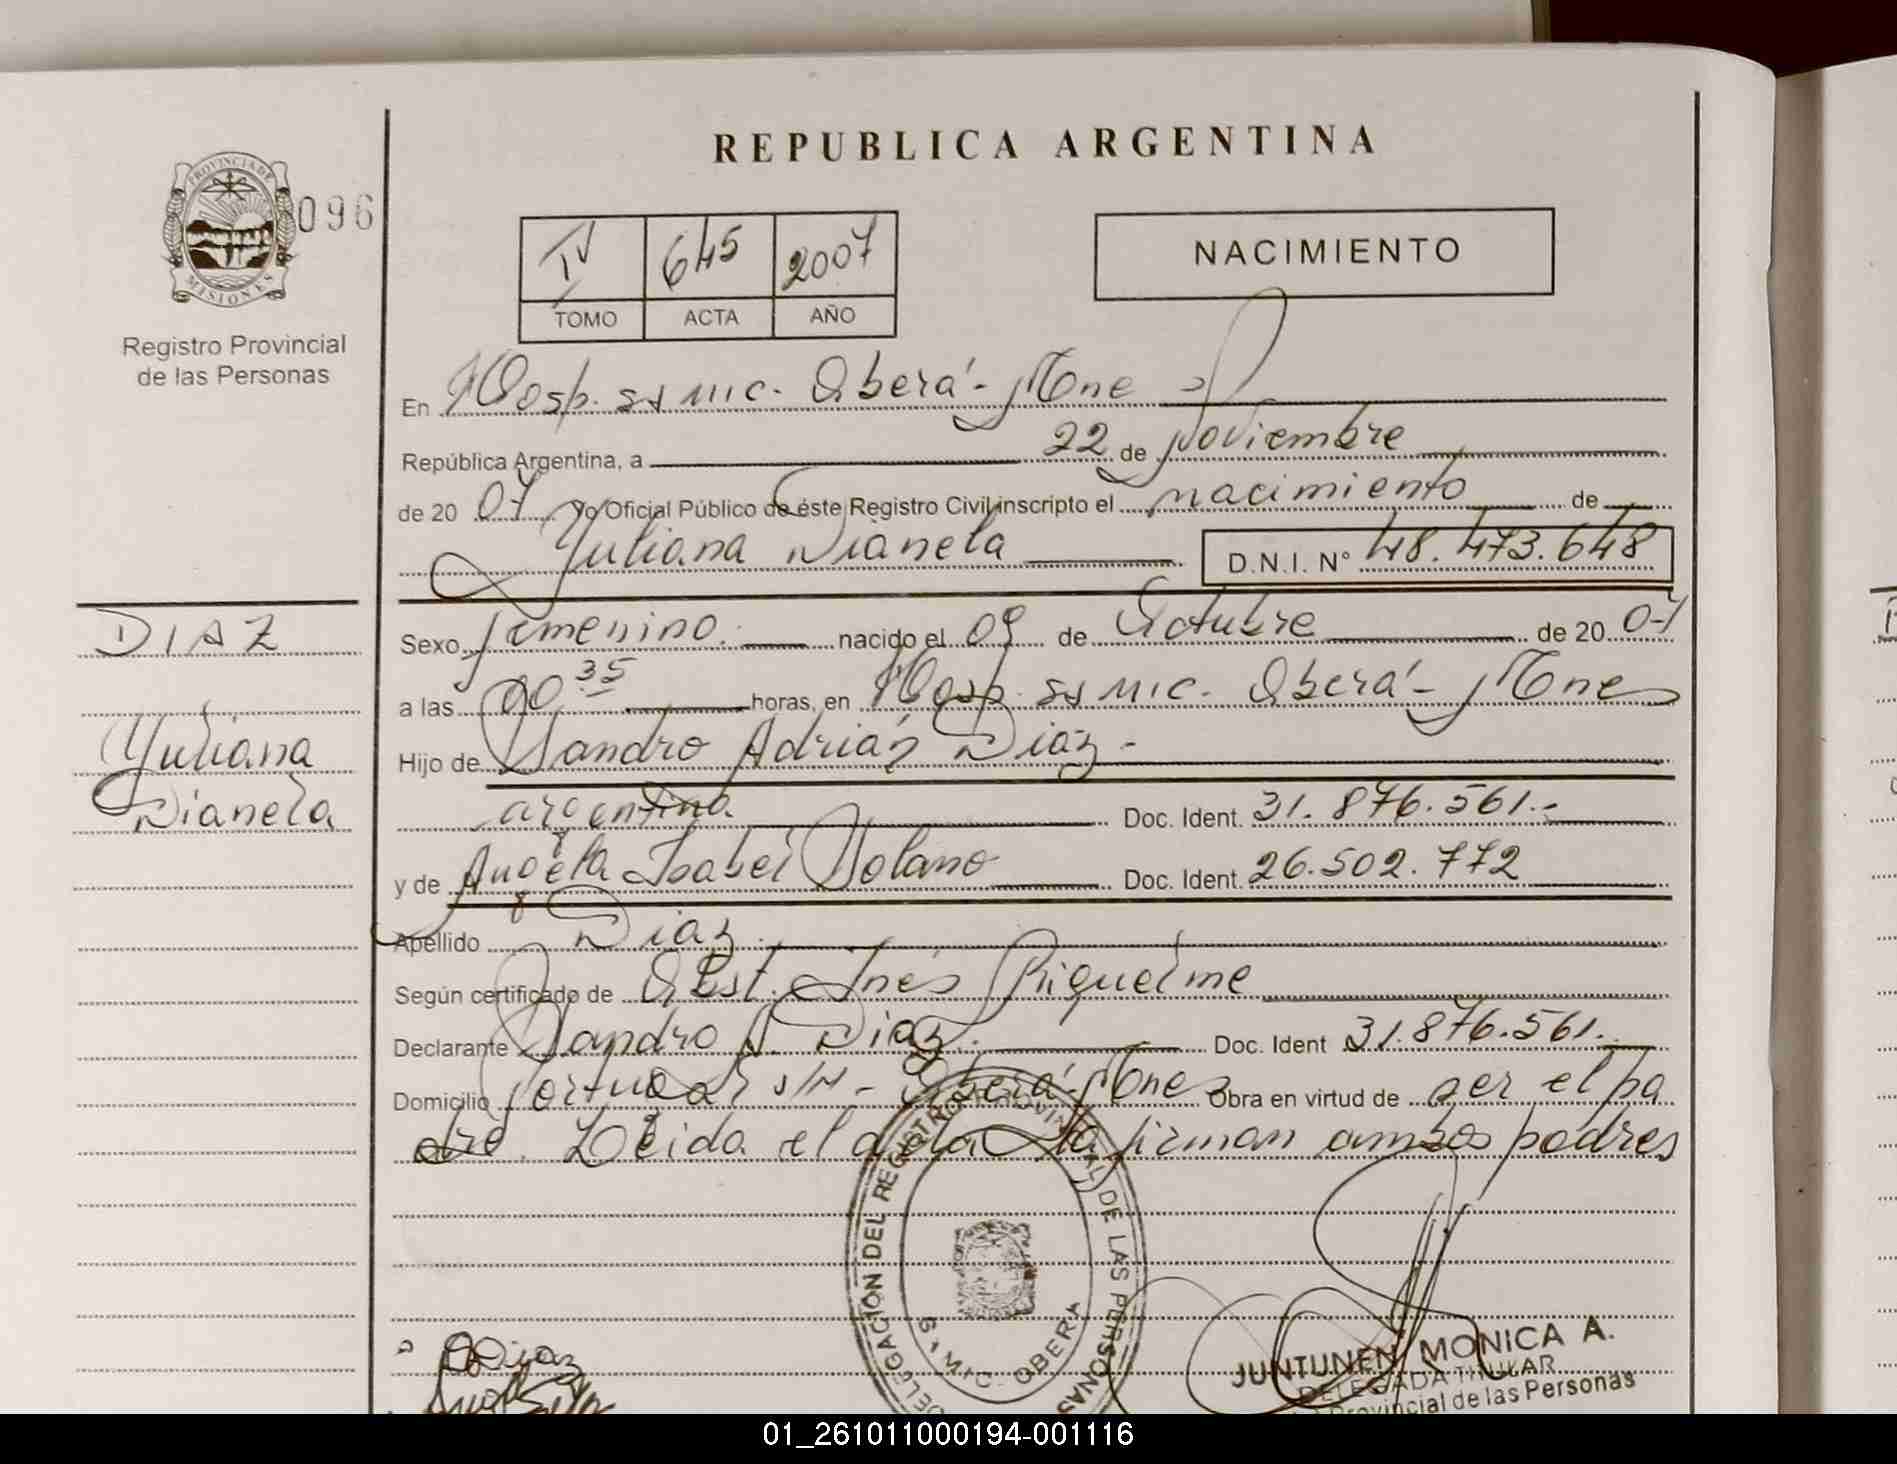 REPUBLICA ARGENTINA
PROVINCIA DE MISIONES
096
Registro Provincial
de las Personas
IV 645 2007
TOMO ACTA AÑO
NACIMIENTO
En Hosp. ss mic. Oberá - Mnes
República Argentina, a 22 de Noviembre
de 20 07 Yo Oficial Público de éste Registro Civil inscripto el nacimiento de
Yuliana Dianela D.N.I. Nº 48.473.648
DIAZ
Yuliana
Dianela
Sexo femenino. nacido el 09 de Octubre de 20 07
a las 00 35 horas, en Hosp. ss mic. Oberá - Mnes
Hijo de Sandro Adrián Diaz -
argentina. Doc. Ident. 31.876.561.-
y de Angela Isabel Solano Doc. Ident. 26.502.772
Apellido Diaz.
Según certificado de Obst. Inés Riquelme
Declarante Sandro A. Diaz. Doc. Ident 31.876.561.
Domicilio s/N - Oberá - Mnes Obra en virtud de ser el pa
dre. Leida el acta la firman ambos padres
DELEGACIÓN DEL REGISTRO PROVINCIAL DE LAS PERSONAS
S. MIC. OBERA
Diaz
JUNTUNEN MONICA A.
DELEGADA TITULAR
Provincial de las Personas
01_261011000194-001116